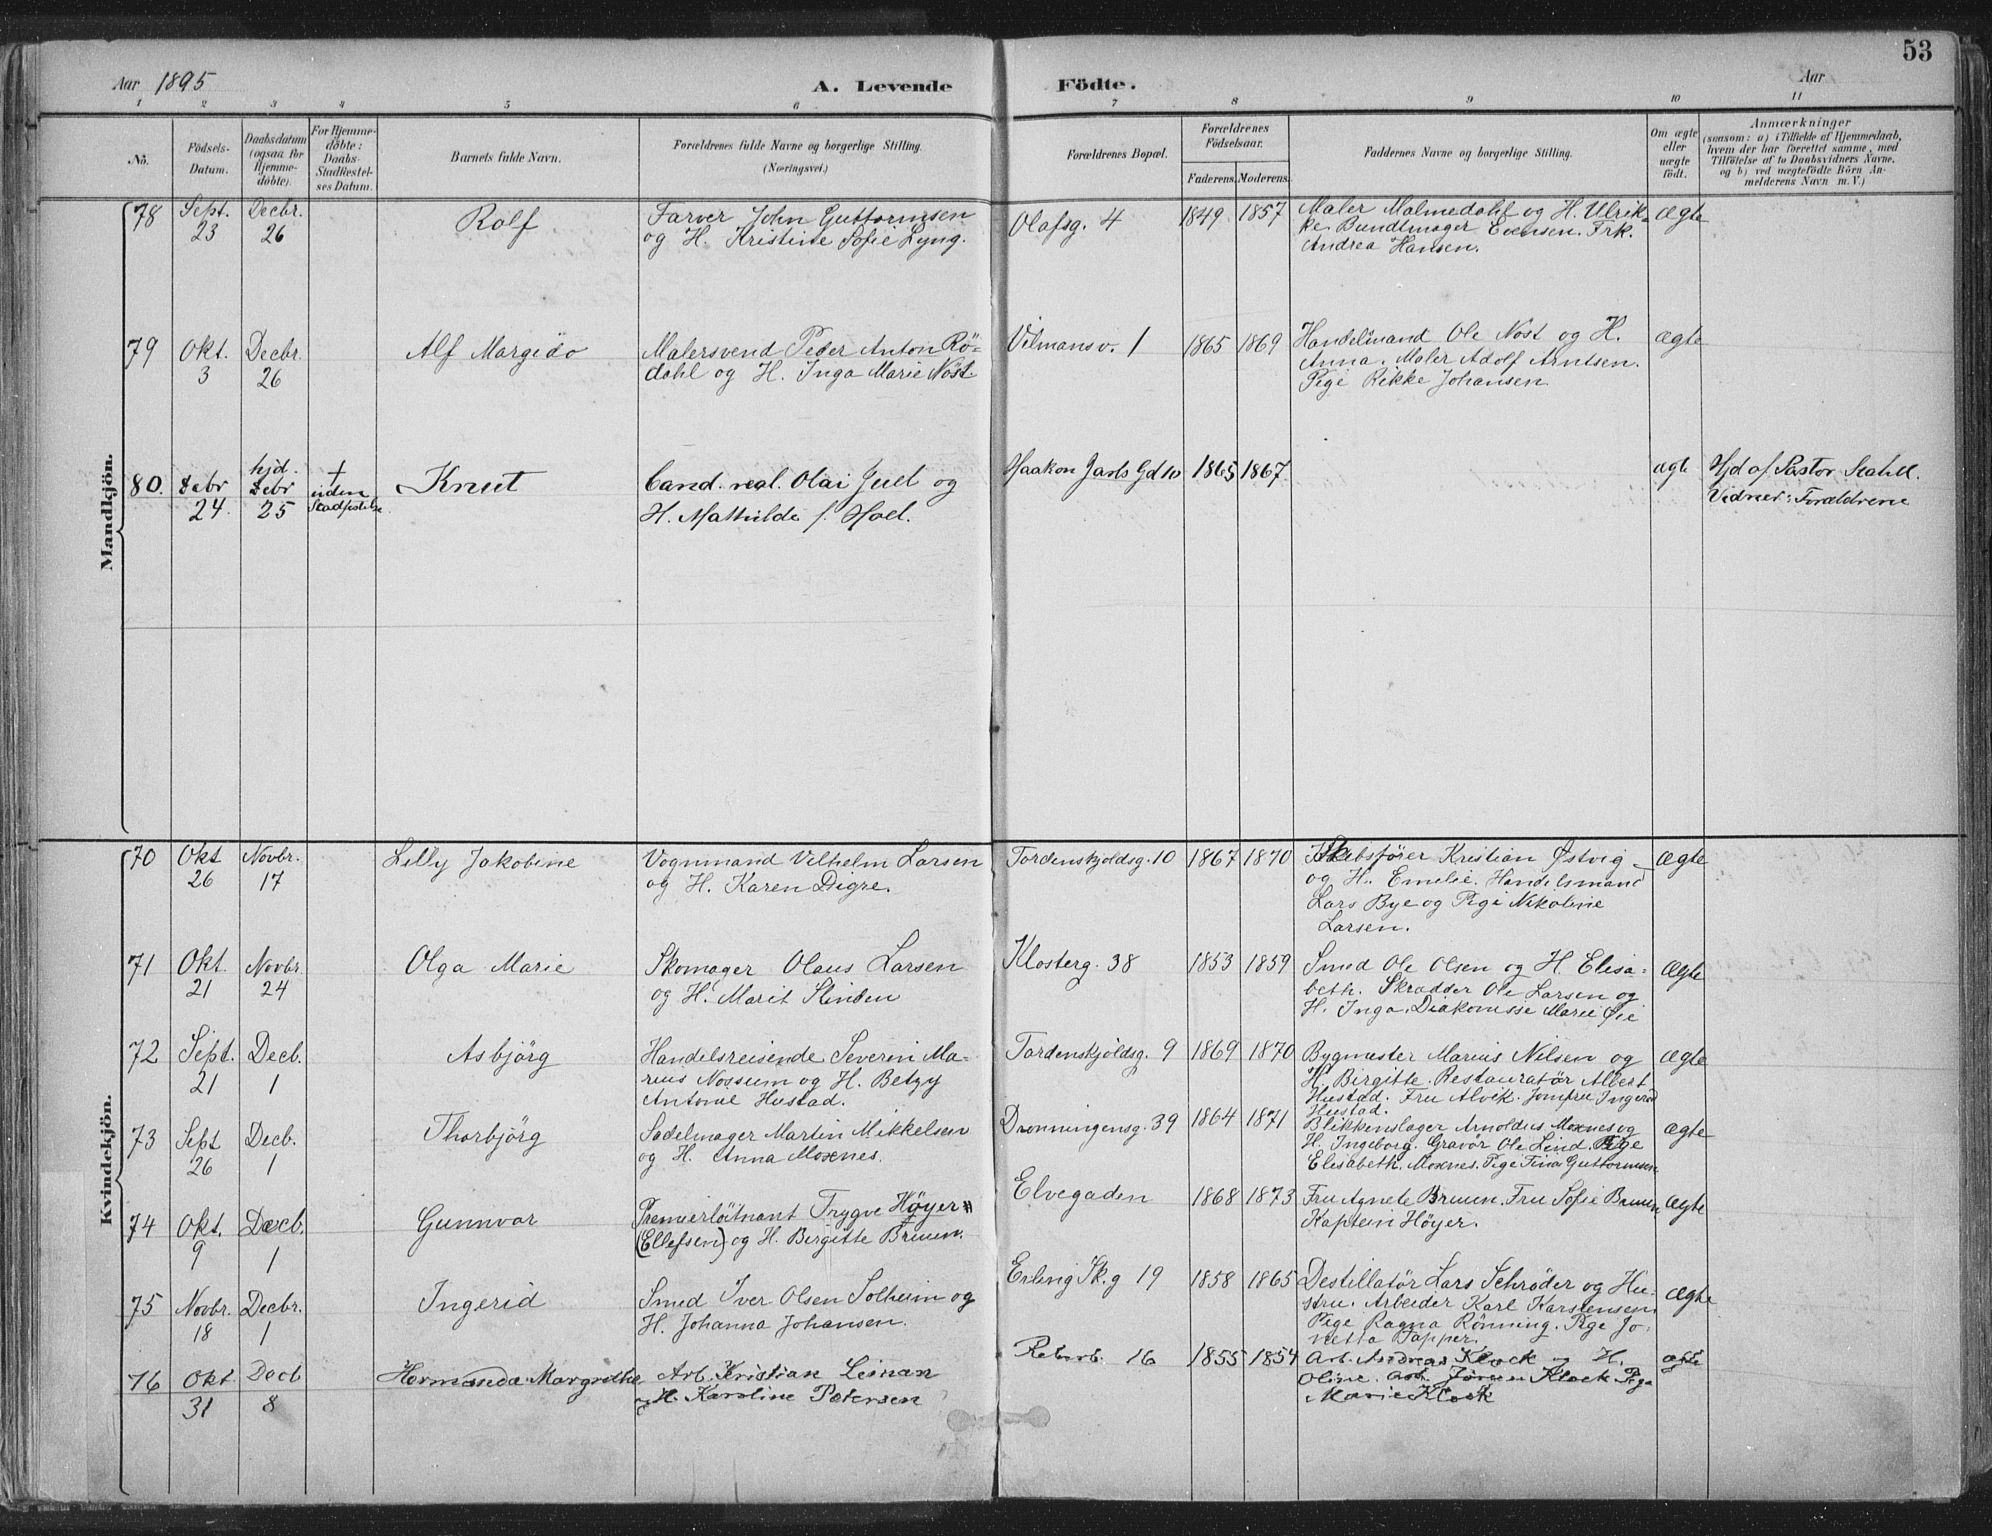 53
Aar 1895
A. Levende Födte.
Aar
1 2 3 4 5 6 7 8 9 10 11
No.
Födsels-
Datum.
Daabsdatum
(ogsaa for
Hjemme-
döbte).
For Hjemme-
döbte:
Daabs-
Stadfestel-
ses Datum.
Barnets fulde Navn.
Forældrenes fulde Navne og borgerlige Stilling.
(Næringsvei.)
Forældrenes Bopæl.
Forældrenes
Födselsaar.
Faderens. Moderens.
Faddernes Navne og borgerlige Stilling.
Om ægte
eller
uægte
födt.
Anmærkninger
(saasom: a) i Tilfælde af Hjemmedaab,
hvem der har forrettet samme, med
Tilföielse af to Daabsvidners Navne.
og b) ved uægtefödte Börn An-
melderens Navn m. V.)
Mandkjön.
78
Sept.
23
Decbr.
26
Rolf
Farver John Guttormsen
og H. Kristine Sofie Lyng.
Olafsg. 4
1849 1857
Maler Malmedahl og H. Ulrik-
ke. Bundtmager Evensen. Frk.
Andrea Hansen.
ægte
79
Okt.
3
Decbr.
26
Alf Margido
Malersvend Peder Anton Rö-
dahl og H. Inga Marie Nöst.
Vilmansv. 1
1865 1869
Handelmand Ole Nost og H.
Anna. Maler Adolf Arntsen.
Pige Rikke Johansen
ægte
80.
Debr
24.
hjd.
Debr
25
+
uden
Stadfæstelse
Knut
Cand. real. Olai Juel og
H. Mathilde f. Hoel.
Haakon Jarls Gd 10
1865 1867
ægte
Hjd af Pastor
Vidner: Forældrene
Kvindekjön.
70
Okt
26
Novbr.
17
Lilly Jakobine
Vognmand Vilhelm Larsen
og H. Karen Digre.
Tordenskjoldsg. 10
1867 1870
Skibsfører Kristian Østvig
og H. Emelie. Handelsmand
Lars Bye og Pige Nikoline
Larsen.
ægte
71
Okt.
21
Novbr.
24
Olga Marie
Skomager Olaus Larsen
og H. Marit Slinden
Klosterg. 38
1853 1859
Smed Ole Olsen og H. Elisa-
beth. Skradder Ole Larsen og
H. Inga. Diakonisse Marie Øie
ægte
72
Sept.
21
Decb.
1
Asbjörg
Handelsreisende Severin Ma-
rius Nossum og H. Betzy
Antonie Hustad.
Tordenskjoldsg. 9
1869 1870
Bygmester Marius Nilsen og
H. Birgitte. Restauratør Albert
Hustad. Fru Alvik. Jomfru Ingerid
Hustad.
ægte
73
Sept
26
Decb.
1
Thorbjörg
Sadelmager Martin Mikkelsen
og H. Anna Moxnes.
Dronningensg. 39
1864 1871
Blikkenslager Arnoldus Moxnes og
H. Ingeborg. Gravör Ole Lind. Pige
Elisabeth. Moxnes. Pige Tina Guttormsen
ægte
74
Okt.
9
Decb.
1
Gunnvor
Premierløitnant Trygve Höyer
(Ellefsen) og H. Birgitte Bruun.
Elvegaden
1868 1873
Fru Agnete Bruun. Fru Sofie Bruun
Kaptein Höyer.
ægte
75
Novbr.
18
Decbr.
1
Ingerid
Smed Iver Olsen Solheim og
H. Johanna Johansen.
Erling Sk.g 19
1858 1865
Destillatör Lars Schrøder og Hu-
stru. Arbeider Karl Karstensen
Pige Ragna Rönning. Pige Jo-
netta Papper.
ægte
76
Okt
31
Decb
8
Hermanda Margrethe
Arb. Kristian Leinan
og H. Karoline Petersen
Reberb. 16
1855 1854
Arb. Andreas Klock og H.
Oline. Arb. Jörgen Klock Pige
Marie Klock
ægte